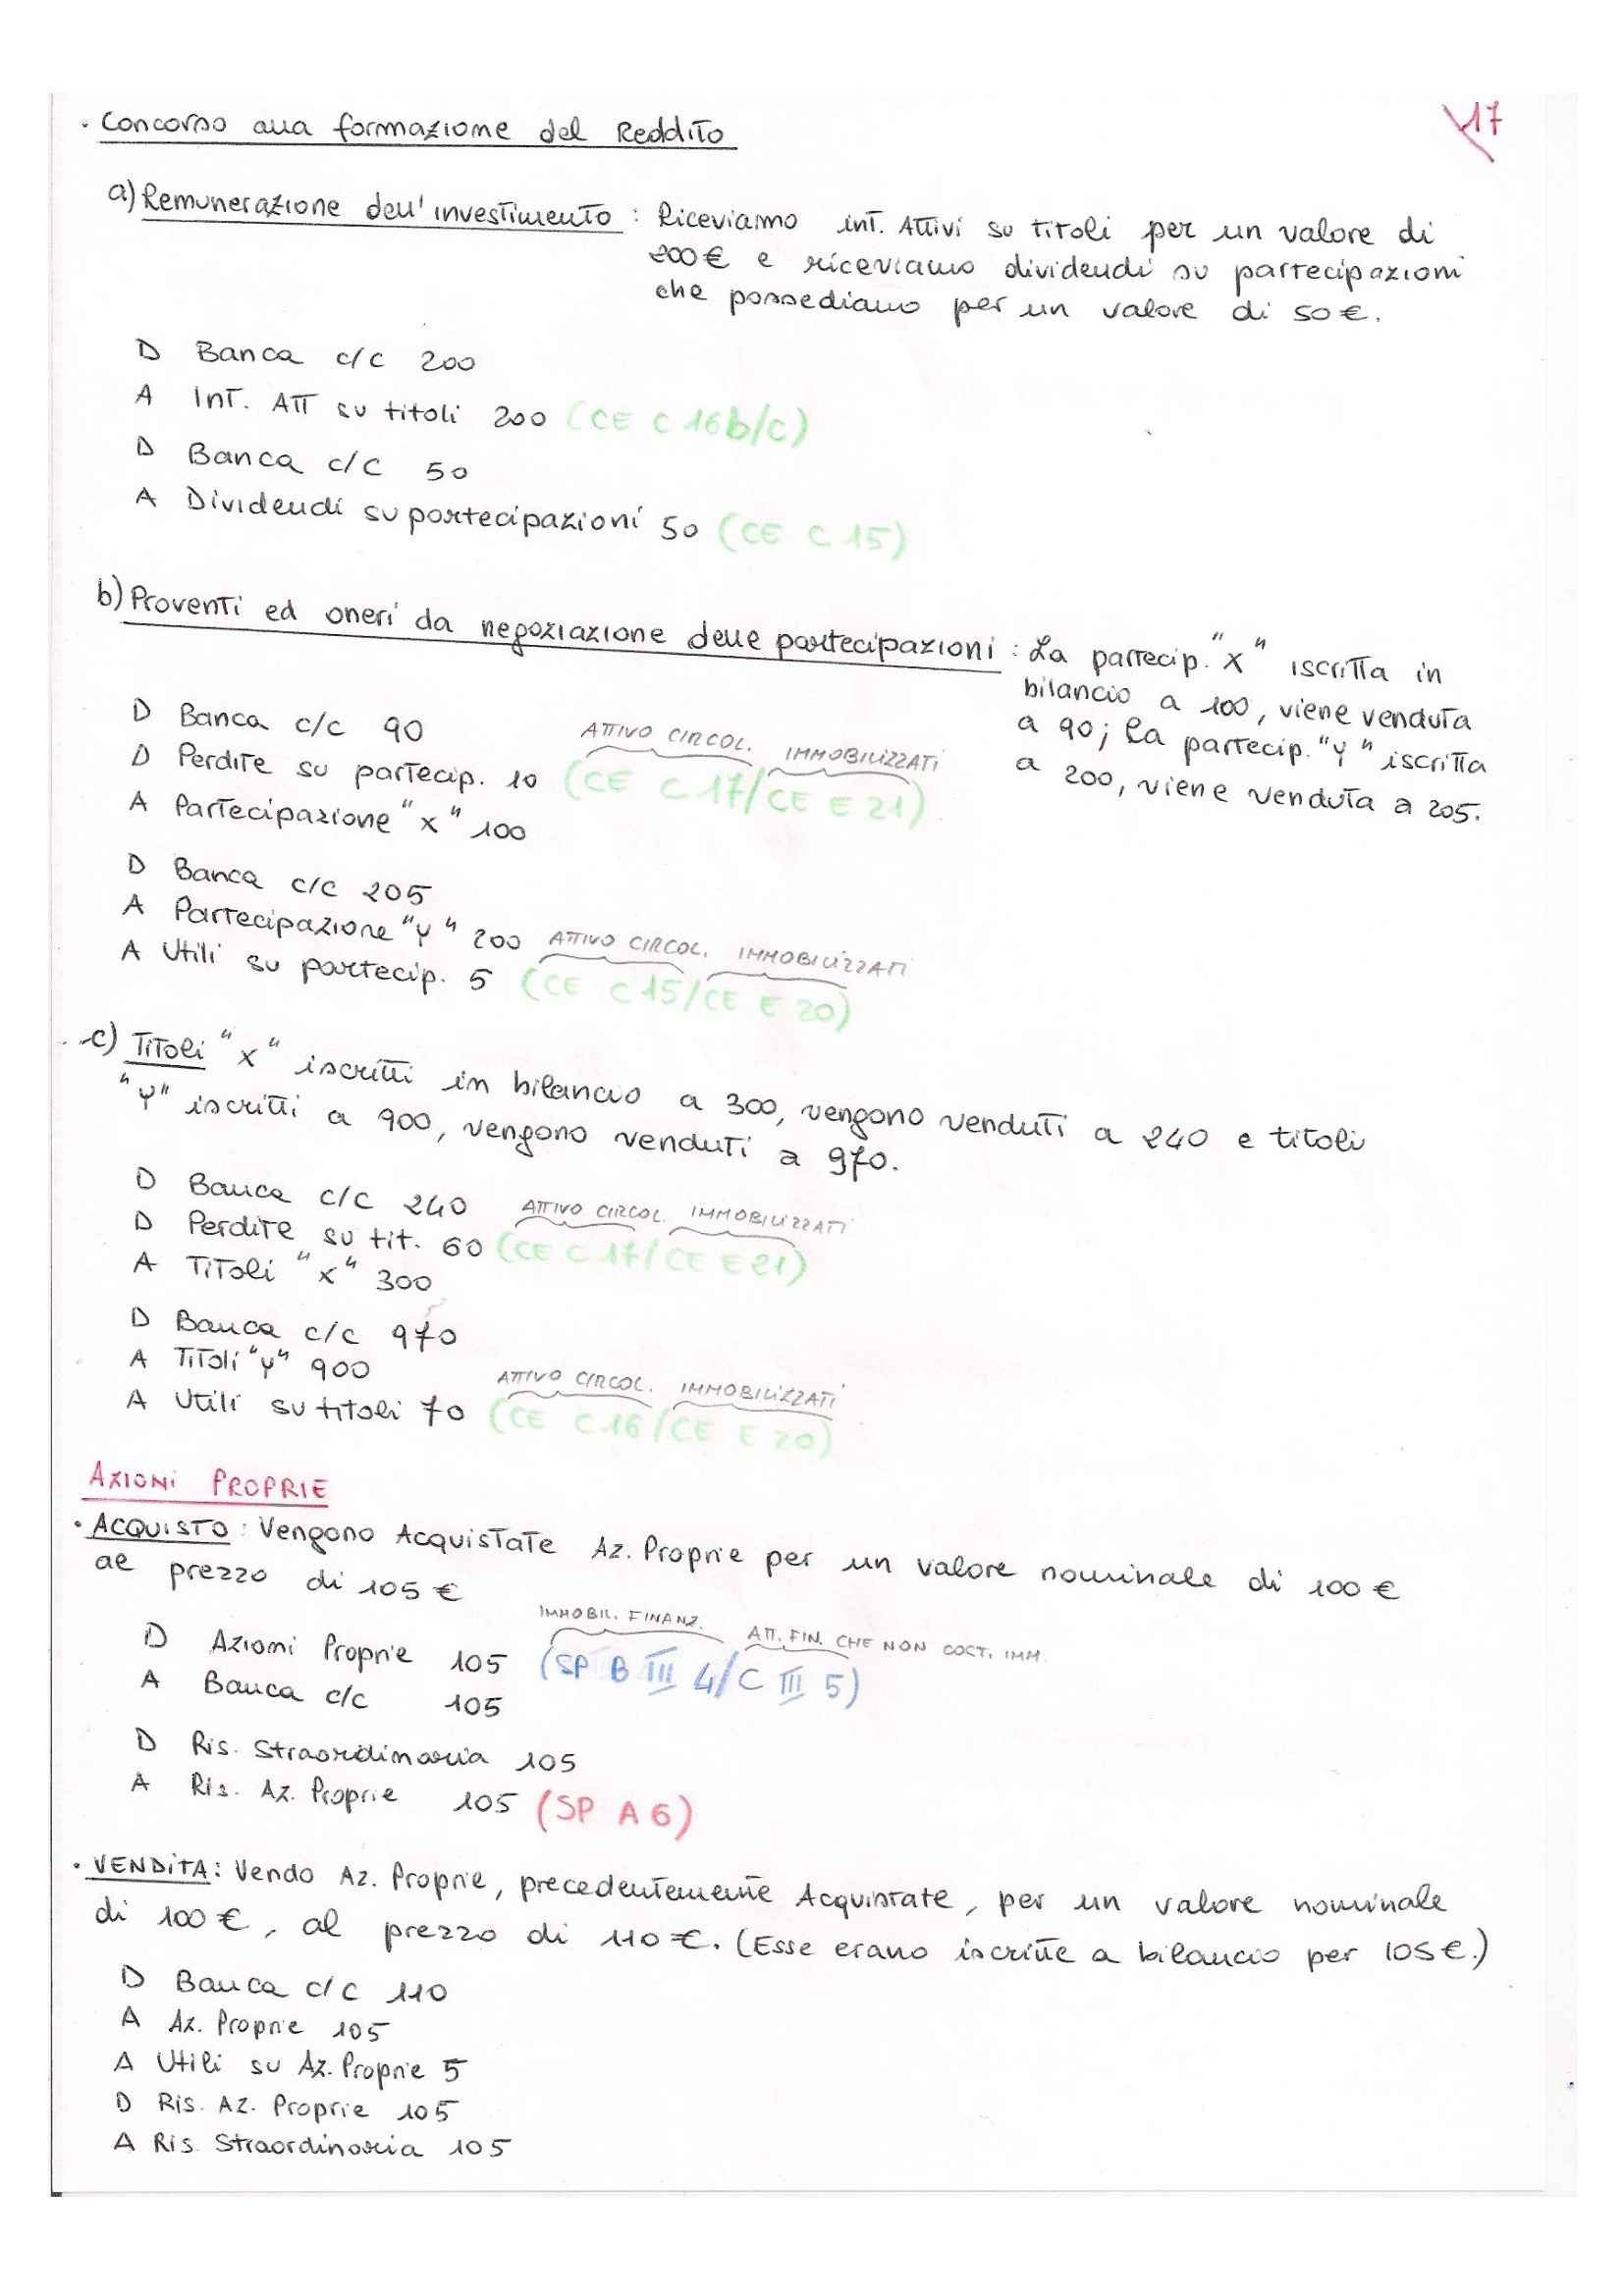 17
· Concorso alla formazione del Reddito
a) Remunerazione dell'investimento : Riceviamo int. Attivi su titoli per un valore di
200 € e riceviamo dividendi su partecipazioni
che possediamo per un valore di 50 €.
D Banca c/c 200
A Int. Att su titoli 200 (CE C 16b/c)
D Banca c/c 50
A Dividendi su partecipazioni 50 (CE C 15)
b) Proventi ed oneri da negoziazione delle partecipazioni : La partecip. "X" iscritta in
bilancio a 100, viene venduta
a 90; la partecip. "Y" iscritta
a 200, viene venduta a 205.
D Banca c/c 90
ATTIVO CIRCOL. IMMOBILIZZATI
D Perdite su partecip. 10 (CE C 17/CE E 21)
A Partecipazione "X" 100
D Banca c/c 205
A Partecipazione "Y" 200
ATTIVO CIRCOL. IMMOBILIZZATI
A Utili su partecip. 5 (CE C 15/CE E 20)
c) Titoli "X" iscritti in bilancio a 300, vengono venduti a 240 e titoli
"Y" iscritti a 900, vengono venduti a 970.
D Banca c/c 240
ATTIVO CIRCOL. IMMOBILIZZATI
D Perdite su tit. 60 (CE C 17/CE E 21)
A Titoli "X" 300
D Banca c/c 970
A Titoli "Y" 900
ATTIVO CIRCOL. IMMOBILIZZATI
A Utili su titoli 70 (CE C 16/CE E 20)
AZIONI PROPRIE
· ACQUISTO : Vengono Acquistate Az. Proprie per un valore nominale di 100 €
al prezzo di 105 €
IMMOBIL. FINANZ. ATT. FIN. CHE NON COST. IMM.
D Azioni Proprie 105 (SP B III 4/C III 5)
A Banca c/c 105
D Ris. Straordinaria 105
A Ris. Az. Proprie 105 (SP A 6)
· VENDITA : Vendo Az. Proprie, precedentemente Acquistate, per un valore nominale
di 100 €, al prezzo di 110 €. (Esse erano iscritte a bilancio per 105 €.)
D Banca c/c 110
A Az. Proprie 105
A Utili su Az. Proprie 5
D Ris. Az. Proprie 105
A Ris. Straordinaria 105